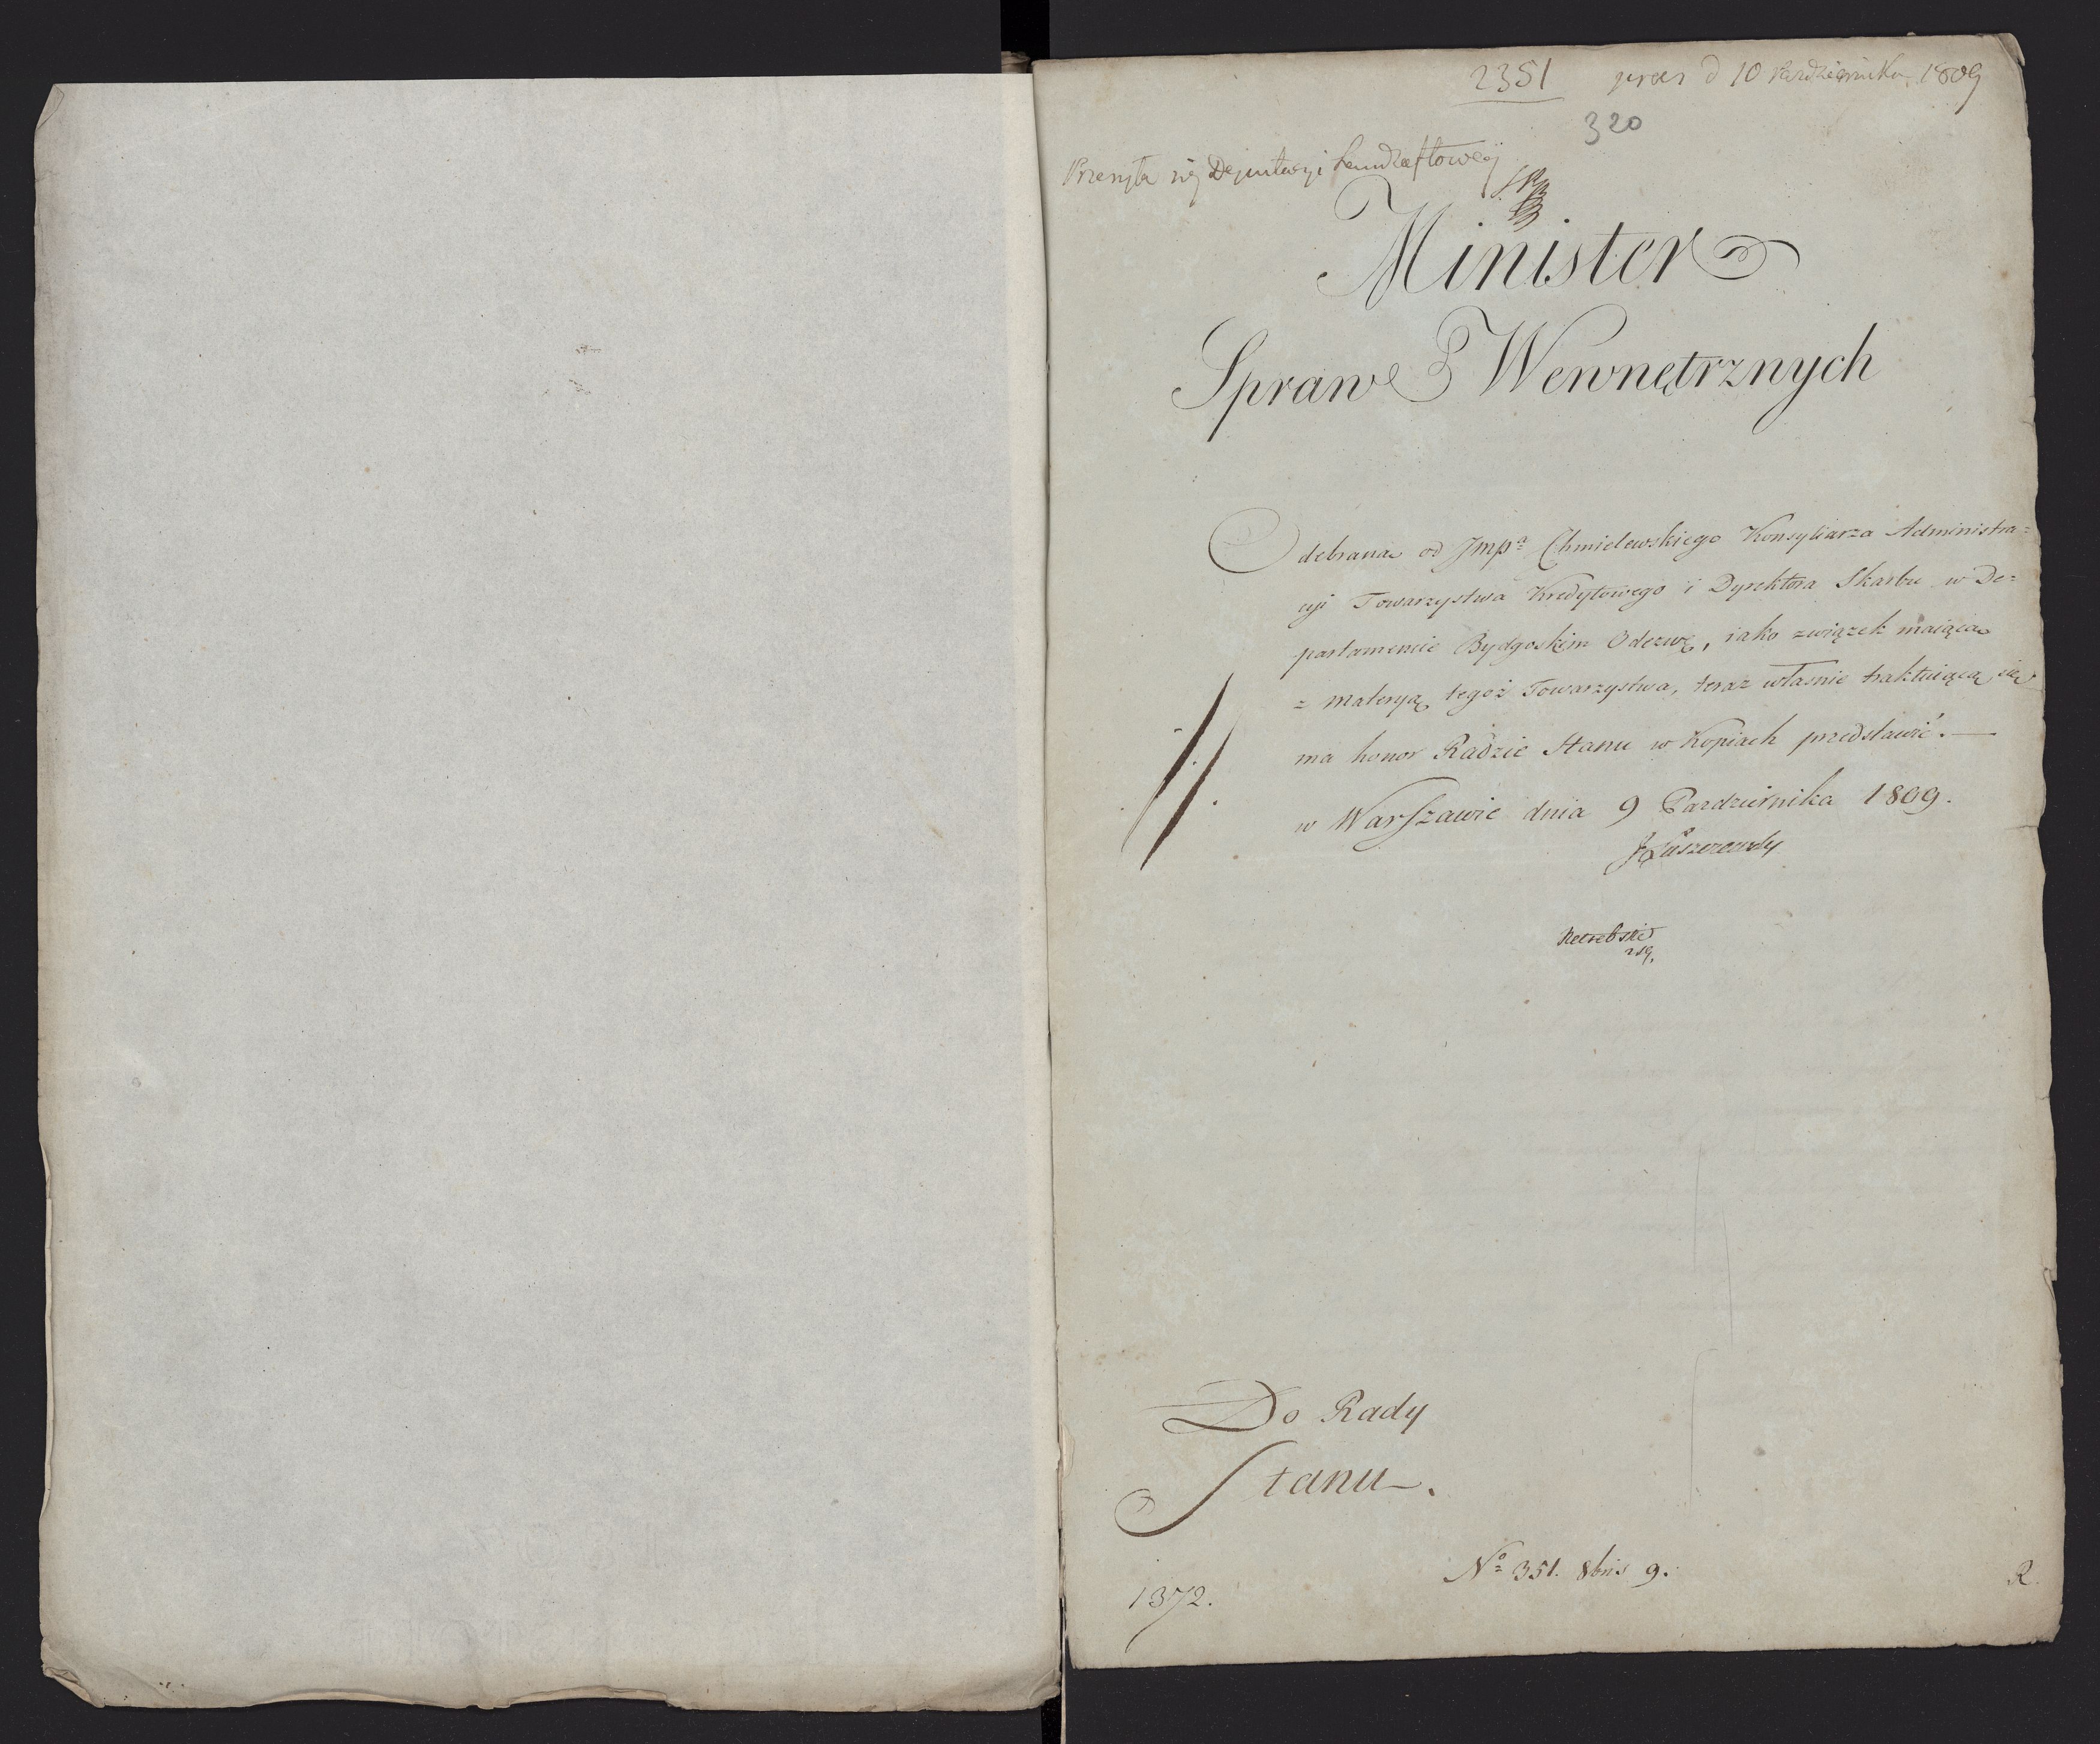 2351 præs d 10 Pazdziernika 1809
320
Przesyła się Deputacyi Landszaftowey
Minister
Spraw Wewnętrznych
Odebraną od Jmpa Chmielewskiego Konsyliarza Administra=
cyi Towarzystwa Kredytowego i Dyrektora Skarbu w De=
partamencie Bydgoskim Odezwę, iako związek maiącą
z materyą tegoż Towarzystwa, teraz właśnie traktuiącą się
ma honor Radzie Stanu w Kopiach przedstawić.—
w Warszawie dnia 9 Pazdziernika 1809.
J Łuszczewski
Do Rady
Stanu.
No 351. 8bris 9.
1372.
R.